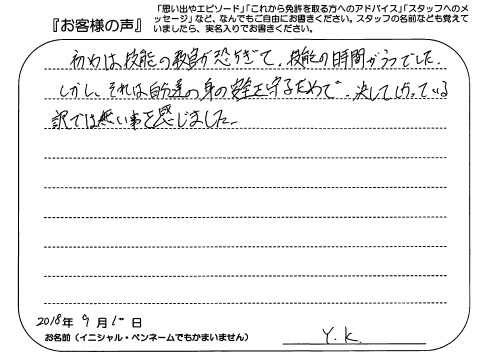 『お客様の声』
「思い出やエピソード」「これから免許を取る方へのアドバイス」「スタッフへのメ
ッセージ」など、なんでもご自由にお書きください。スタッフの名前なども覚えて
いましたら、実名入りでお書きください。
初めは技能の教官が恐すぎて、技能の時間がうつでした。
しかし、それは自分達の身の安全を守るためで、決して
訳では無い事を感じました。
2018年 9月 日
お名前(イニシャル・ペンネームでもかまいません)
Y.K.